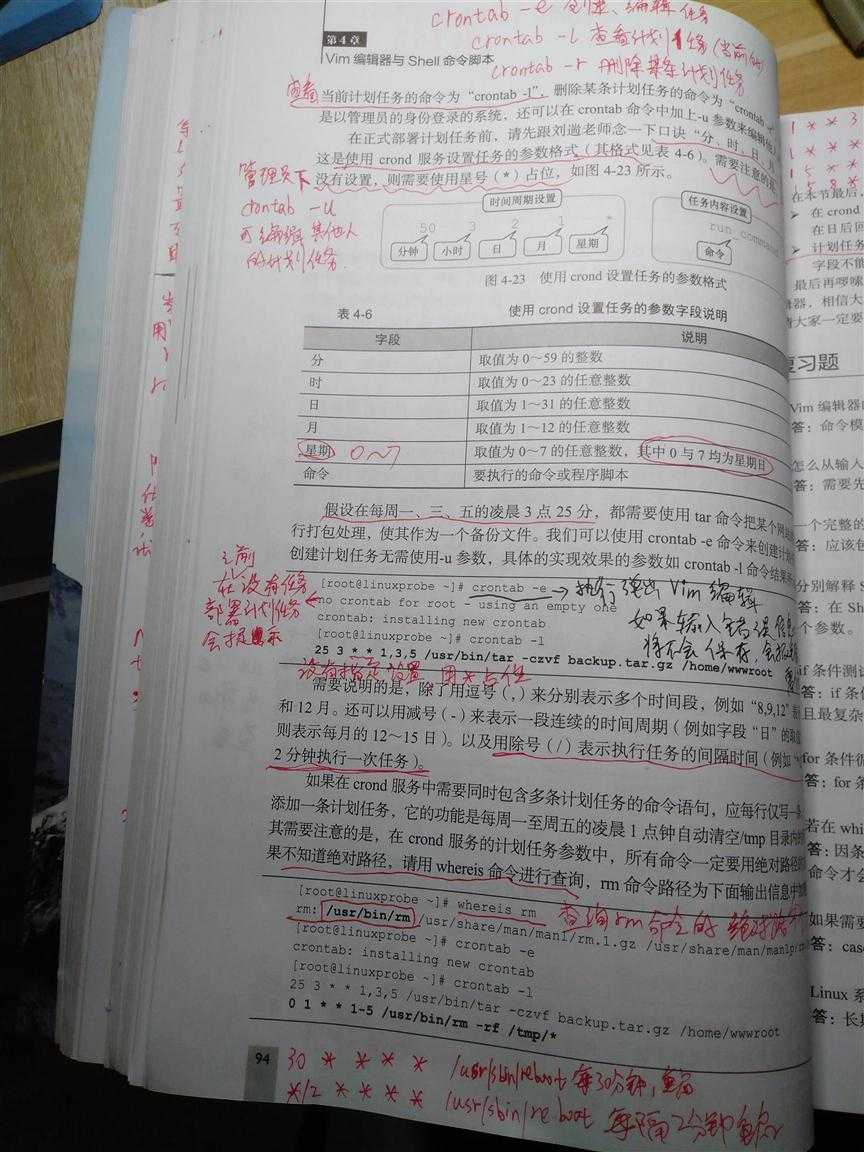 crontab -e 创建、编辑 任务
第4章
crontab -l 查看计划任务(当前的)
Vim 编辑器与 Shell 命令脚本
crontab -r 删除某条计划任务
查看
当前计划任务的命令为“crontab -l”，删除某条计划任务的命令为“crontab -r”
是以管理员的身份登录的系统，还可以在 crontab 命令中加上-u 参数来编辑他人
在正式部署计划任务前，请先跟刘遄老师念一下口诀“分、时、日、月
这是使用 crond 服务设置任务的参数格式（其格式见表 4-6）。需要注意的是
没有设置，则需要使用星号（*）占位，如图 4-23 所示。
管理员下
crontab -u
可编辑其他人
的计划任务
时间周期设置
任务内容设置
50 3 2 1 *
run command
分钟 小时 日 月 星期
命令
图 4-23 使用 crond 设置任务的参数格式
表 4-6 使用 crond 设置任务的参数字段说明
字段 说明
分 取值为 0～59 的整数
时 取值为 0～23 的任意整数
日 取值为 1～31 的任意整数
月 取值为 1～12 的任意整数
星期 0～7 取值为 0～7 的任意整数，其中 0 与 7 均为星期日
命令 要执行的命令或程序脚本
假设在每周一、三、五的凌晨 3 点 25 分，都需要使用 tar 命令把某个网站
行打包处理，使其作为一个备份文件。我们可以使用 crontab -e 命令来创建计划
创建计划任务无需使用-u 参数，具体的实现效果的参数如 crontab -l 命令结果
之前
在没有任务
部署计划任务
会提示
[root@linuxprobe ~]# crontab -e
执行弹出 Vim 编辑
no crontab for root - using an empty one
如果输入错误信息
crontab: installing new crontab
将不会保存，会报
[root@linuxprobe ~]# crontab -l
25 3 * * 1,3,5 /usr/bin/tar -czvf backup.tar.gz /home/wwwroot
没有指定设置 用*占位
需要说明的是，除了用逗号（,）来分别表示多个时间段，例如“8,9,12”
和 12 月。还可以用减号（-）来表示一段连续的时间周期（例如字段“日”的取
则表示每月的 12～15 日）。以及用除号（/）表示执行任务的间隔时间（例如
2 分钟执行一次任务）。
如果在 crond 服务中需要同时包含多条计划任务的命令语句，应每行仅写一条
添加一条计划任务，它的功能是每周一至周五的凌晨 1 点钟自动清空/tmp 目录内的
其需要注意的是，在 crond 服务的计划任务参数中，所有命令一定要用绝对路径的
果不知道绝对路径，请用 whereis 命令进行查询，rm 命令路径为下面输出信息中
[root@linuxprobe ~]# whereis rm
查询rm命令的绝对路径
rm: /usr/bin/rm /usr/share/man/man1/rm.1.gz /usr/share/man/man1p/rm
[root@linuxprobe ~]# crontab -e
crontab: installing new crontab
[root@linuxprobe ~]# crontab -l
25 3 * * 1,3,5 /usr/bin/tar -czvf backup.tar.gz /home/wwwroot
0 1 * * 1-5 /usr/bin/rm -rf /tmp/*
94
30 * * * * /usr/sbin/reboot 每30分钟,重启
*/2 * * * * /usr/sbin/reboot 每隔2分钟重启
在本节最后，
在 crond
在日后回
计划任务
字段不能
最后再啰嗦
辑器，相信大
请大家一定要
复习题
Vim 编辑器
答：命令模
怎么从输入
答：需要先
一个完整的
答：应该包
分别解释 S
答：在 Sh
个参数。
if 条件测试
答：if 条件
且最复杂
for 条件循
答：for 条
若在 whi
答：因条
命令才会
如果需要
答：case
Linux 系
答：长期